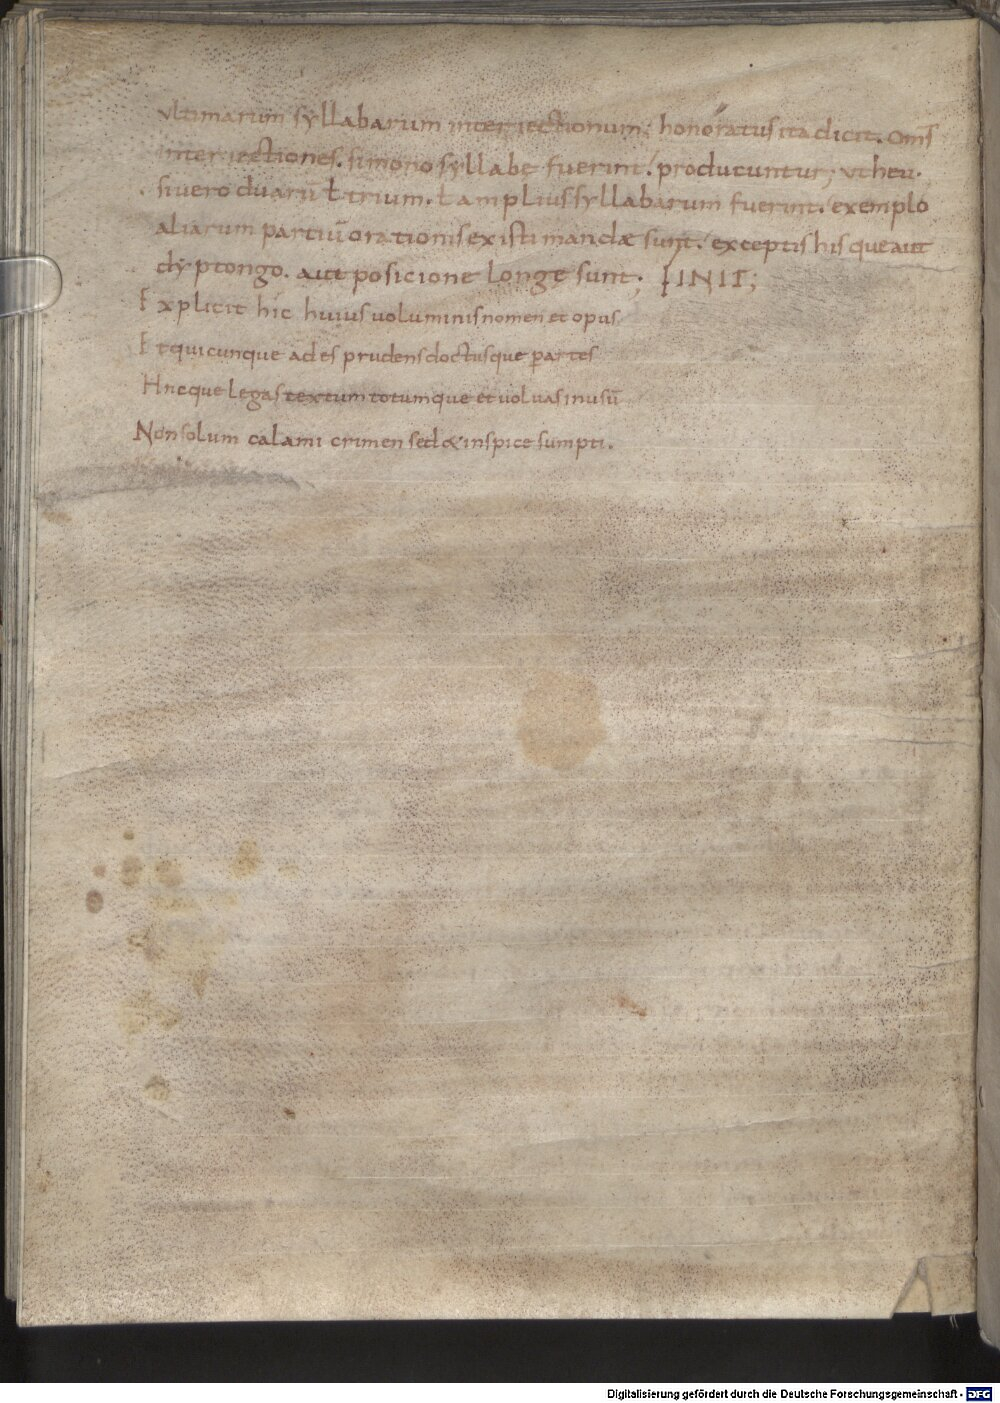 ultimarum syllabarum interiectionum; honoratus ita dicit. Oms̄
interiectiones. si monosyllabe fuerint. producuntur; ut heu.
si uero duarū ł trium. ł amplius syllabarum fuerint. exemplo
aliarum partiū orationis existimandæ sunt. exceptis his que aut
dyptongo. aut posicione longe sunt; FINIT;
Explicit hic huius uoluminis nomen et opus
Et quicunque ades prudens doctusque partes
Hneque legas textum totumque et uoluas in usū
Non solum calami crimen sed & inspice sumpti.
Digitalisierung gefördert durch die Deutsche Forschungsgemeinschaft - DFG